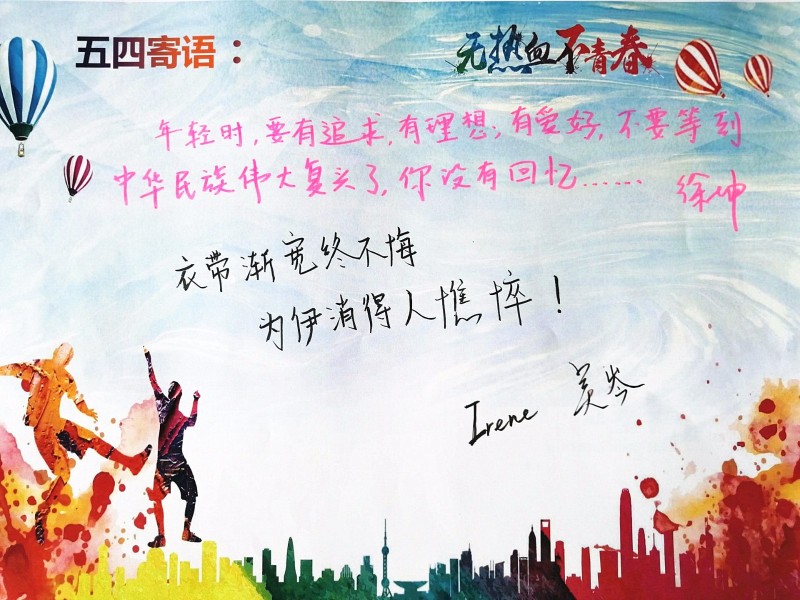 五四寄语：
无热血不青春
年轻时,要有追求,有理想;有爱好,不要等到
中华民族伟大复兴了,你没有回忆……
徐坤
衣带渐宽终不悔
为伊消得人憔悴！
Irene 吴岑